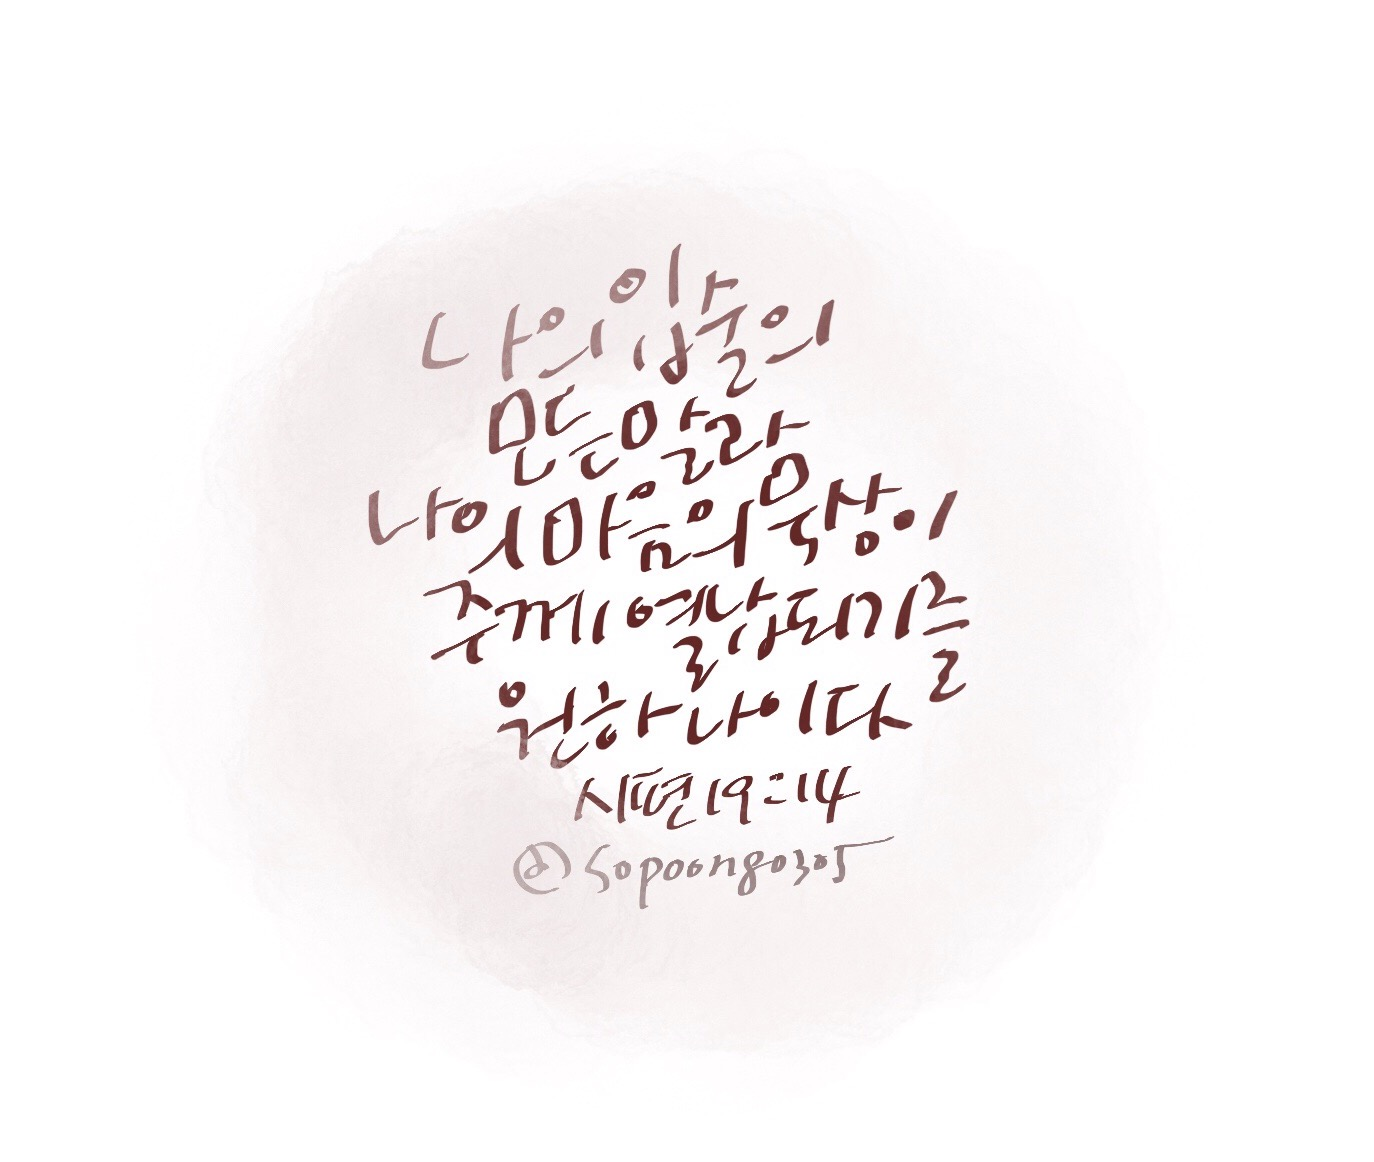 나의 입술의
모든 말과
나의 마음의 묵상이
주께 열납되기를
원하나이다
시편 19:14
@sopoong0305